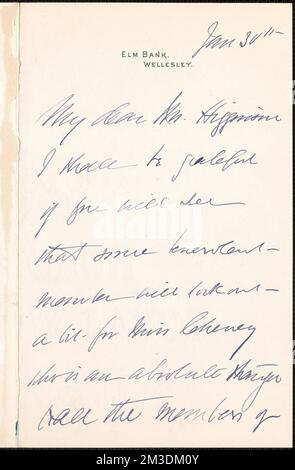 Jan 30th
ELM BANK,
WELLESLEY.
My dear Mr. Higginson
I shall be grateful
if you will see
that some benevolent
member will look out
a bit for Miss Cheney
who is an absolute stranger
to all the members of
alamy
Image ID: 2M3DM0Y
www.alamy.com